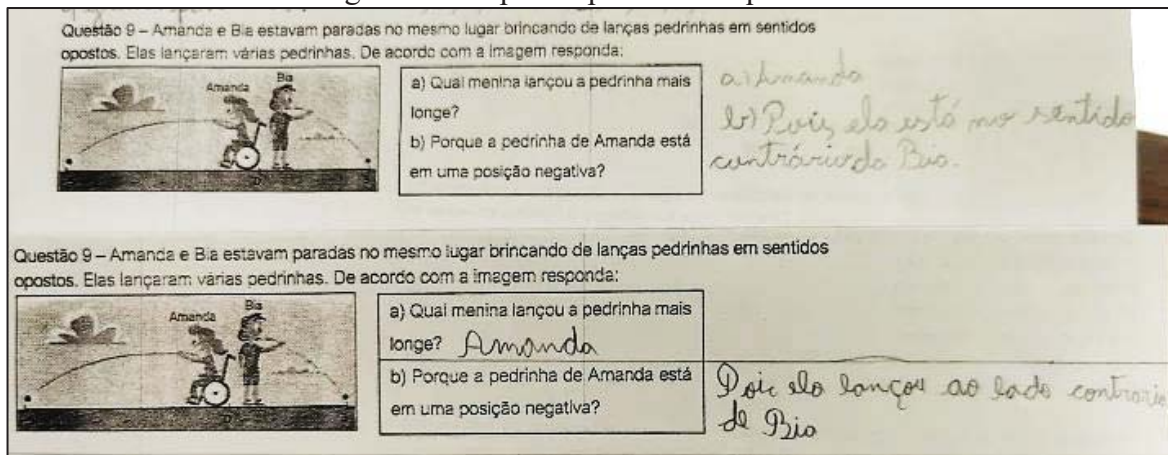 Questão 9 – Amanda e Bia estavam paradas no mesmo lugar brincando de lanças pedrinhas em sentidos
opostos. Elas lançaram várias pedrinhas. De acordo com a imagem responda:
Amanda
Bia
a) Qual menina lançou a pedrinha mais
longe?
b) Porque a pedrinha de Amanda está
em uma posição negativa?
a) Amanda
b) Pois ela está no sentido
contrário da Bia.
Questão 9 – Amanda e Bia estavam paradas no mesmo lugar brincando de lanças pedrinhas em sentidos
opostos. Elas lançaram várias pedrinhas. De acordo com a imagem responda:
Amanda
Bia
a) Qual menina lançou a pedrinha mais
longe? Amanda
b) Porque a pedrinha de Amanda está
em uma posição negativa?
Pois ela lançou ao lado contrario
de Bia